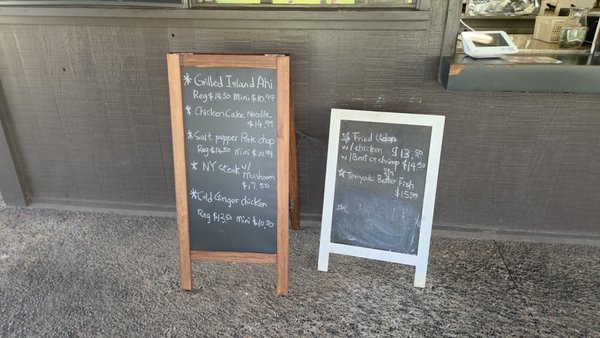 * Grilled Island Ahi
Reg $14.50 Mini $10.99
* Chicken Cake Noodle
$14.99
* Salt pepper Pork chop
Reg $14.50 Mini $10.99
* NY steak w/
mushroom
$17.50
* Cold Ginger chicken
Reg $13.50 Mini $10.50
* Fried
w/ chicken $13.50
w/ Beef or shrimp $14.50
* Teriyaki Butter Fish
$15.99